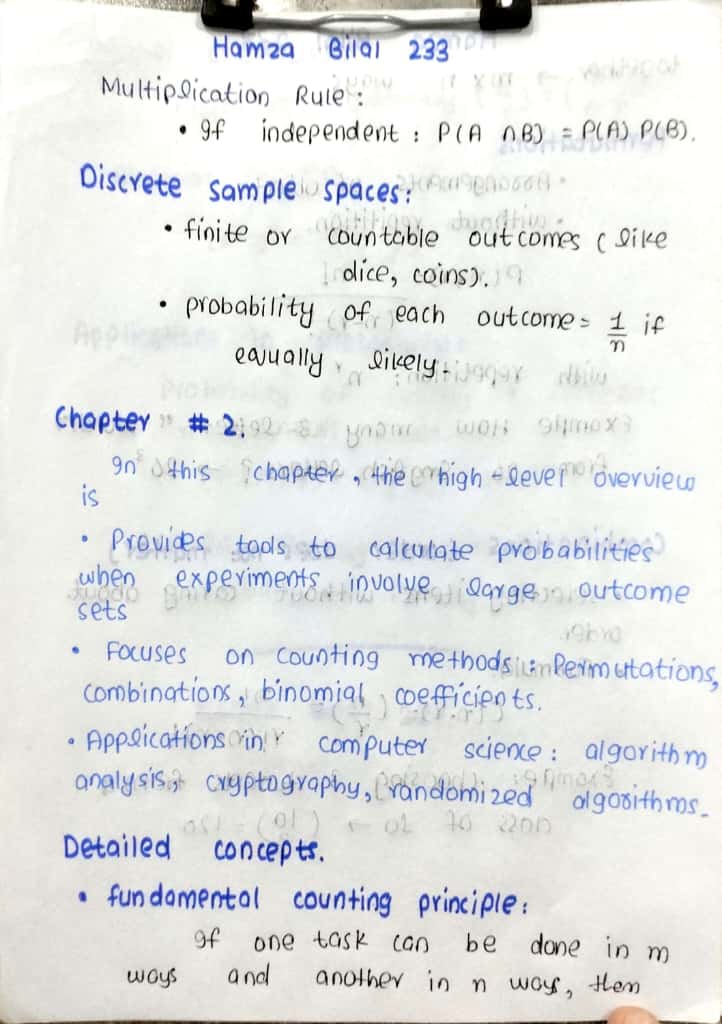 Hamza Bilal 233
Multiplication Rule:
• If independent : P(A ∩B) = P(A) P(B).
Discrete sample spaces:
• finite or countable outcomes ( like
dice, coins).
• probability of each outcome = 1/n if
equally likely.
Chapter # 2.
In this chapter, the high-level overview
is
• Provides tools to calculate probabilities
when experiments involve large outcome
sets
• Focuses on counting methods: Permutations,
combinations, binomial coefficients.
• Applications in computer science: algorithm
analysis, cryptography, randomized algorithms.
Detailed concepts.
• fundamental counting principle:
If one task can be done in m
ways and another in n ways, then